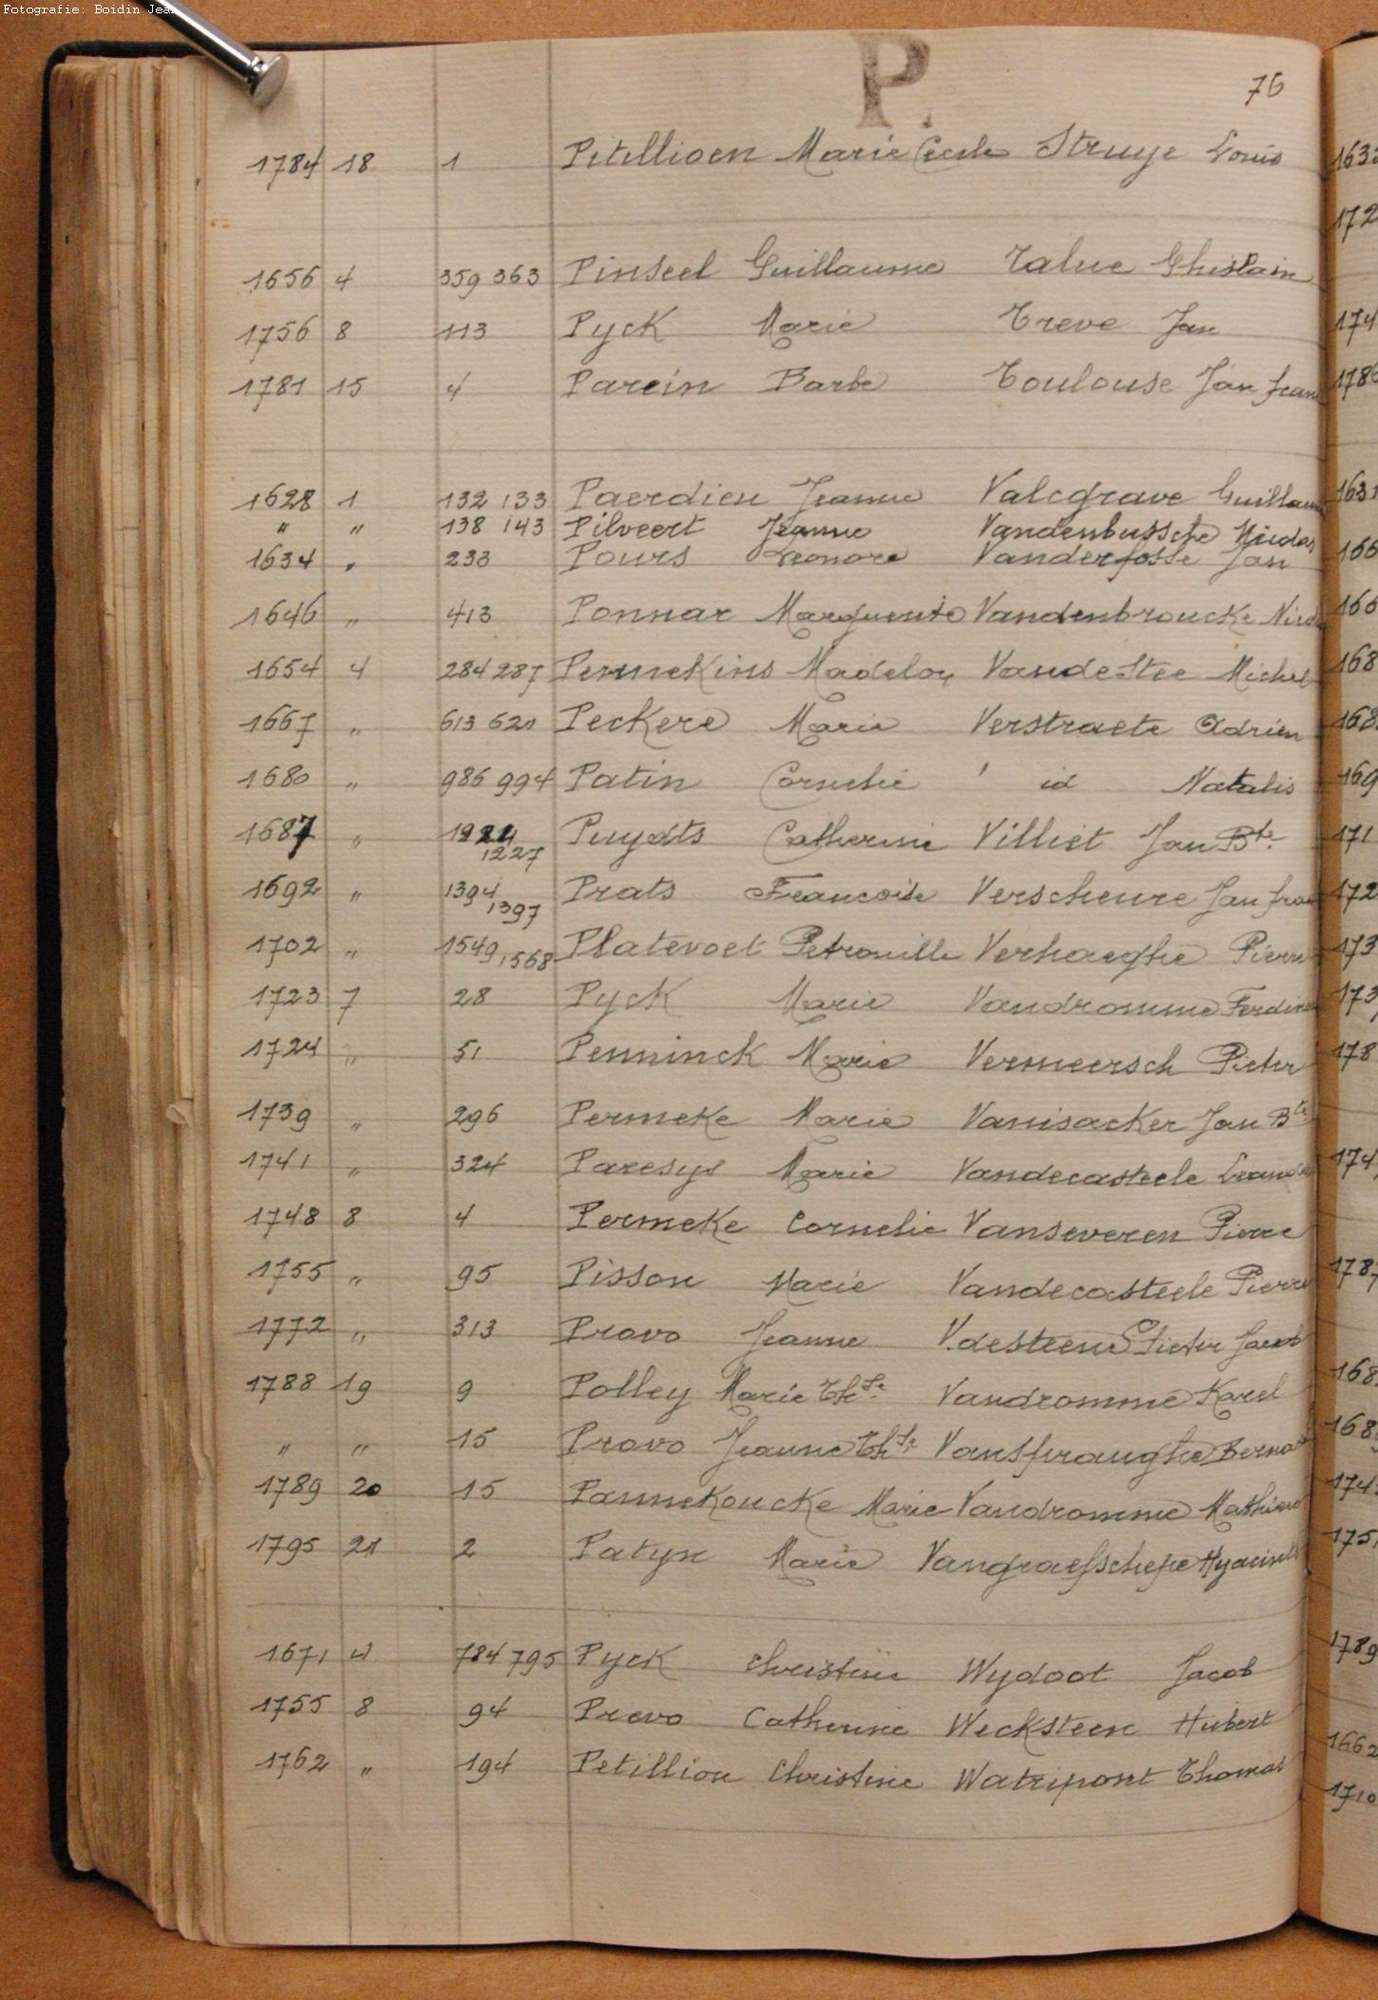 Fotografie: Boidin Jean
P.
76
1784 18 1 Pitillioen Marie Cecile Struye Louis
1656 4 359 363 Pinseel Guillaume Talue Ghislain
1756 8 113 Pyck Marie Treve Jan
1781 15 4 Parein Barbe Toulouse Jan fran
1628 1 132 133 Paerdieu Jeanne Valcgrave Guillau
" " 138 143 Pilveert Jeanne Vandenbussche Nicolas
1634 " 233 Pours Leonore Vanderfosse Jan
1646 " 413 Ponnar Marguerite Vandenbroucke Nico
1654 4 284 287 Permekins Madelon Vandestee Michel
1667 " 613 620 Peckere Marie Verstraete Adrien
1680 " 986 994 Patin Cornelie id Natalis
1687 " 1227 Puydts Catherine Villiet Jan Bte
1692 " 1394 1397 Prats Francoise Verscheure Jan fran
1702 " 1549 1568 Platevoet Petronille Verhaeghe Pierre
1723 7 28 Pyck Marie Vandromme Ferdina
1724 " 51 Penninck Marie Vermeersch Pieter
1739 " 296 Permeke Marie Vanisacker Jan Bte
1741 " 324 Paresys Marie Vandecasteele
1748 8 4 Permeke Cornelie Vanseveren Pierre
1755 " 95 Pisson Marie Vandecasteele Pierre
1772 " 313 Provo Jeanne V.desteene Pieter Jacob
1788 19 9 Polley Marie Thse Vandromme Karel
" " 15 Provo Jeanne Thse Vanspranghe Berna
1789 20 15 Pannekoucke Marie Vandromme Mathieu
1795 21 2 Patyn Marie Vangraefschepe Hyacinth
1671 4 784 795 Pyck Christine Wydoot Jacob
1755 8 94 Prevo Catherine Wecksteen Hubert
1762 " 194 Petillion Christine Watripont Thomas
163
172
174
178
1631
166
166
168
168
169
171
172
173
173
178
174
1787
168
168
174
175
1789
1662
1710